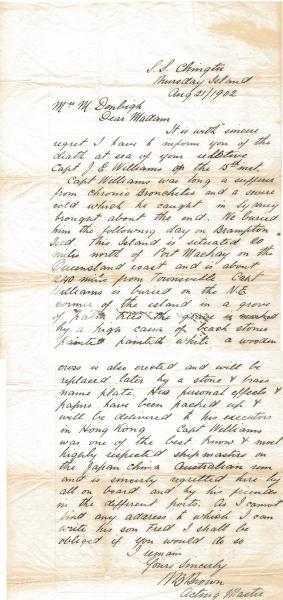 S.S. Chingtu
Thursday Island
Aug 21/1902
Mrs M. Denbigh
Dear Madam
It is with sincere
regret I have to inform you of the
death at sea of your
Capt J E Williams on the 15th inst
Capt Williams was long a sufferer
from Chronic Bronchitis and a severe
cold which he caught in Sydney
brought about the end. We buried
him the following day on Brampton
Isld. This Island is situated 20
miles north of Port Mackay on the
Queensland coast and is about
240 miles from Townsville Capt
Williams is buried on the N.E
corner of the island in a grove
of trees the grave is marked
by a high cairn of beach stones
painted painted white a wooden
cross is also erected and will be
replaced later by a stone & brass
name plate. His personal effects &
papers have been packed up &
will be delivered to his executors
in Hong Kong Capt Williams
was one of the best know & most
highly respected shipmasters on
the Japan China Australian run
and is sincerely regretted here by
all on board and by his friends
in the different ports. As I cannot
find any address to which I can
write his son Fred I shall be
obliged if you would do so
I remain
Yours Sincerely
Brown
Acting Master